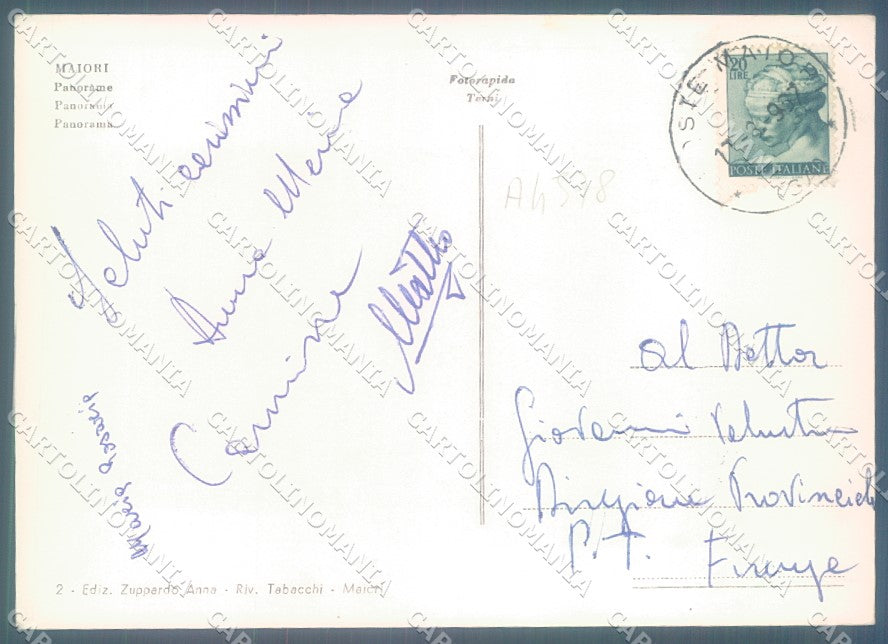 MAIORI
Panorame
Panorama
Panorama
Fotorapida
Terni
20
LIRE
POSTE ITALIANE
Saluti carissimi
Anna Maria
Carmine
Matteo
Maria Rosaria
Al Dottor
Giovanni
Direzione Provinciale
P. T. Firenze
2 - Ediz. Zuppardo Anna - Riv. Tabacchi - Maiori
CARTOLINOMANIA